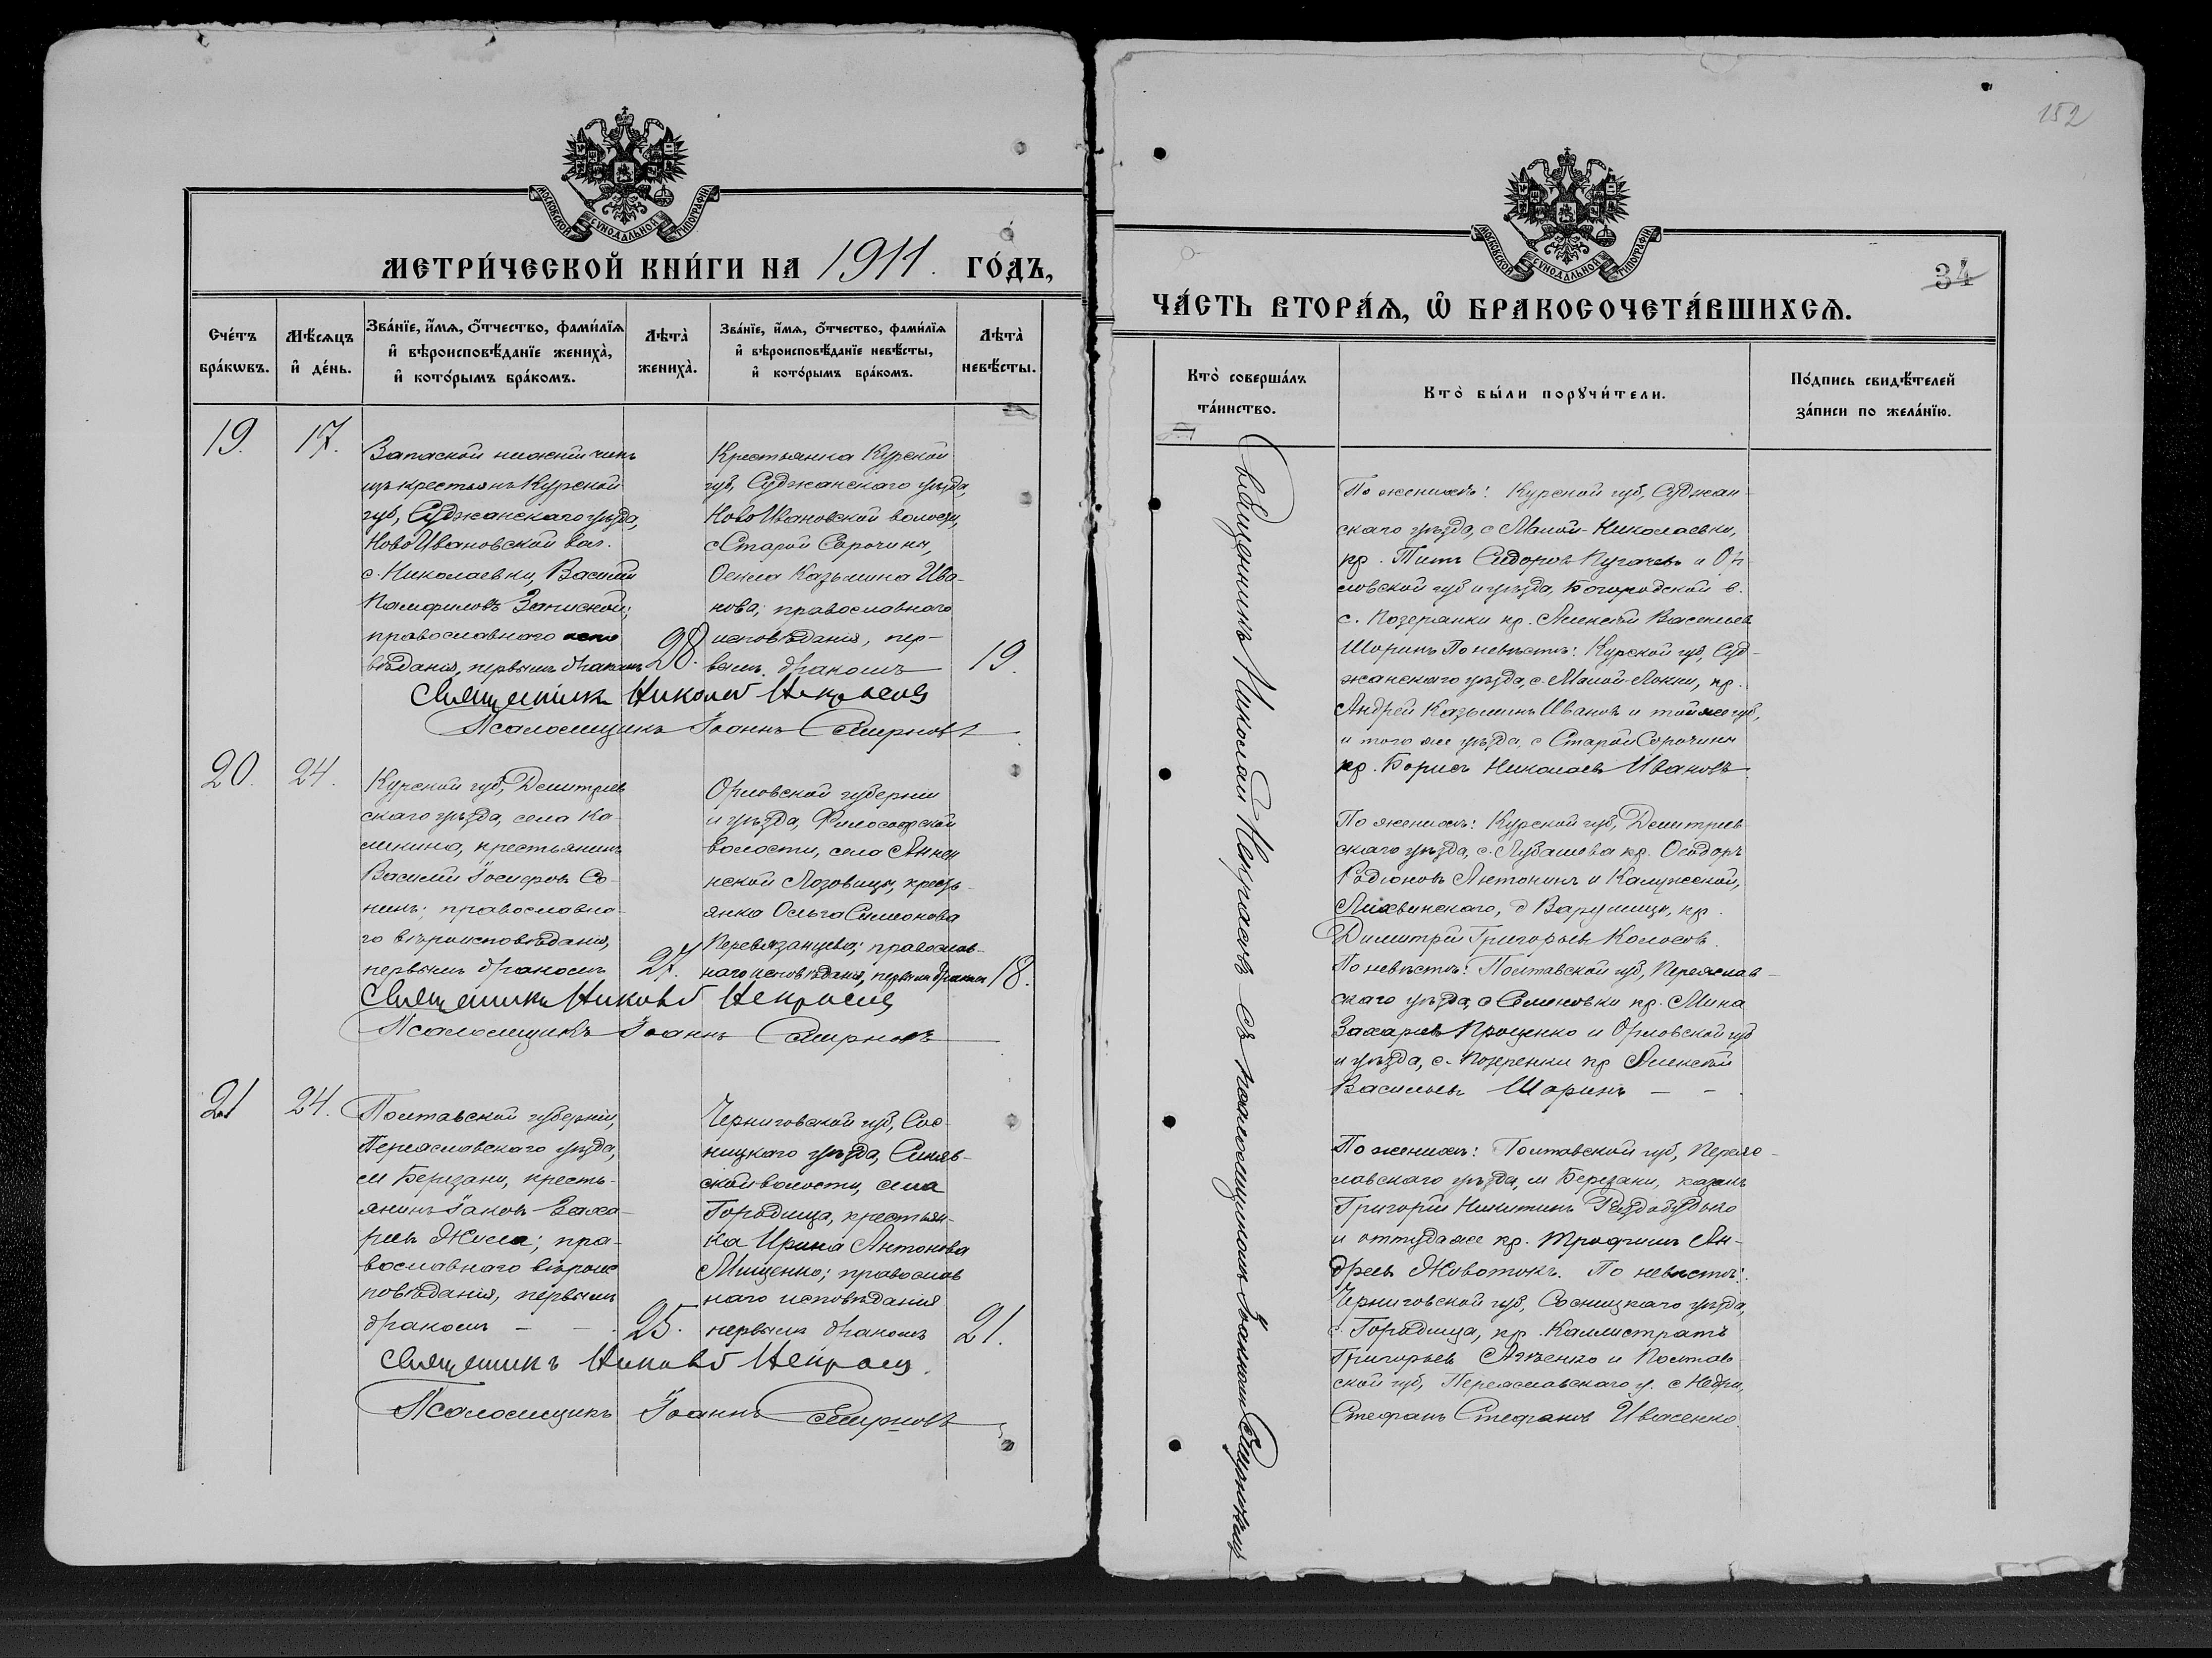 152
МОСКОВСКОЙ СУНОДАЛЬНОЙ ТИПОГРАФІИ
МЕТРИ́ЧЕСКОЙ КНИ́ГИ НА 1911. ГО́ДЪ,
Сче́тъ бра́кѡвъ.
Мѣ́сѧцъ и҆ де́нь.
Зва́нїе, и҆́мѧ, ѻ҆́тчество, фами́лїѧ
и҆ вѣроисповѣ́данїе жениха̀,
и҆ кото́рымъ бра́комъ.
Лѣта̀ жениха̀.
Зва́нїе, и҆́мѧ, ѻ҆́тчество, фами́лїѧ
и҆ вѣроисповѣ́данїе невѣ́сты,
и҆ кото́рымъ бра́комъ.
Лѣта̀ невѣ́сты.
19.
17.
Запасной нижній чинъ
изъ крестьянъ Курской
губ, Суджанскаго уѣзда,
НовоИвановской вол.
с. Николаевки, Василій
Памфиловъ
православнаго испо
вѣданія, первымъ бракомъ
28.
Крестьянка Курской
губ, Суджанскаго уѣзда,
НовоИвановской волости,
с Старой Сорочины,
Казьмина Ива-
нова; православнаго
исповѣданія, пер-
вымъ бракомъ
19.
Священникъ Николай Некрасовъ
Псаломщикъ Іоаннъ Смирновъ
20.
24.
Курской губ, Дмитріев
скаго уѣзда, села Ка-
линина, крестьянинъ
Василій Іосифовъ Со-
нинъ; православна-
го вѣроисповѣданія,
первымъ бракомъ
27.
Орловской губерніи
и уѣзда, Философской
волости, села Аннен
нской Лозовицы, кресть-
янка Ольга Симеонова
Перевязанцева; православ-
наго исповѣданія, первымъ бракомъ
18.
Священникъ Николай Некрасовъ
Псаломщикъ Іоаннъ Смирновъ
21
24.
Полтавской губерніи,
Переяславскаго уѣзда,
м Березани, кресть-
янинъ Іаковъ Заха-
ріевъ Жила; пра-
вославнаго вѣроис
повѣданія, первымъ
бракомъ – –
25.
Черниговской губ, Сос-
ницкаго уѣзда, Синяв-
ской волости, села
Городища, крестьян-
ка Ирина Антонова
Мищенко; православ
наго исповѣданія
первымъ бракомъ
21.
Священникъ Николай Некрасовъ.
Псаломщикъ Іоаннъ Смирновъ
МОСКОВСКОЙ СУНОДАЛЬНОЙ ТИПОГРАФІИ
34
ЧА́СТЬ ВТОРА́Ѧ, Ѽ БРАКОСОЧЕТА́ВШИХСѦ.
Кто̀ соверша́лъ та́инство.
Кто̀ бы́ли порꙋчи́тели.
По́дпись свидѣ́телей за́писи по жела́нїю.
Священникъ Николай Некрасовъ съ псаломщикомъ Іоанномъ Смирновымъ
По женихѣ: Курской губ, Суджан-
скаго уѣзда, с Малой-Николаевки,
кр. Титъ Сидоровъ Пугачевъ и Ор-
ловской губ и уѣзда, Богородской в.
с. кр. Алексѣй Васильевъ
Шоринъ По невѣстѣ: Курской губ, Суд-
жанскаго уѣзда, с. Малой-Локни, кр.
Андрей Казьминъ Ивановъ и той же губ,
и того же уѣзда, с Старой Сорочины
кр. Борисъ Николаевъ Ивановъ
По женихѣ: Курской губ, Дмитріев
скаго уѣзда, с. кр. Ѳеодоръ
Родіоновъ Антонинъ и Калужской,
Лихвинскаго, д кр.
Димитрій Григорьевъ Колосовъ.
По невѣстѣ: Полтавской губ, Переяслав-
скаго уѣзда, с Семеновки кр. Мина
Захаріевъ Проценко и Орловской губ
и уѣзда, с. кр Алексѣй
Васильевъ Шоринъ – –
По женихѣ: Полтавской губ, Переяс-
лавскаго уѣзда, м Березани, казакъ
Григорій Никитинъ Раздобудько
и оттуда же кр. Трофимъ Ан-
дреевъ Животокъ. По невѣстѣ:
Черниговской губ, Сосницкаго уѣзда,
с. Городища, кр. Каллистратъ
Григорьевъ и Полтав-
ской губ, Переяславскаго у. с Недри,
Стефанъ Стефановъ Ивасенко.